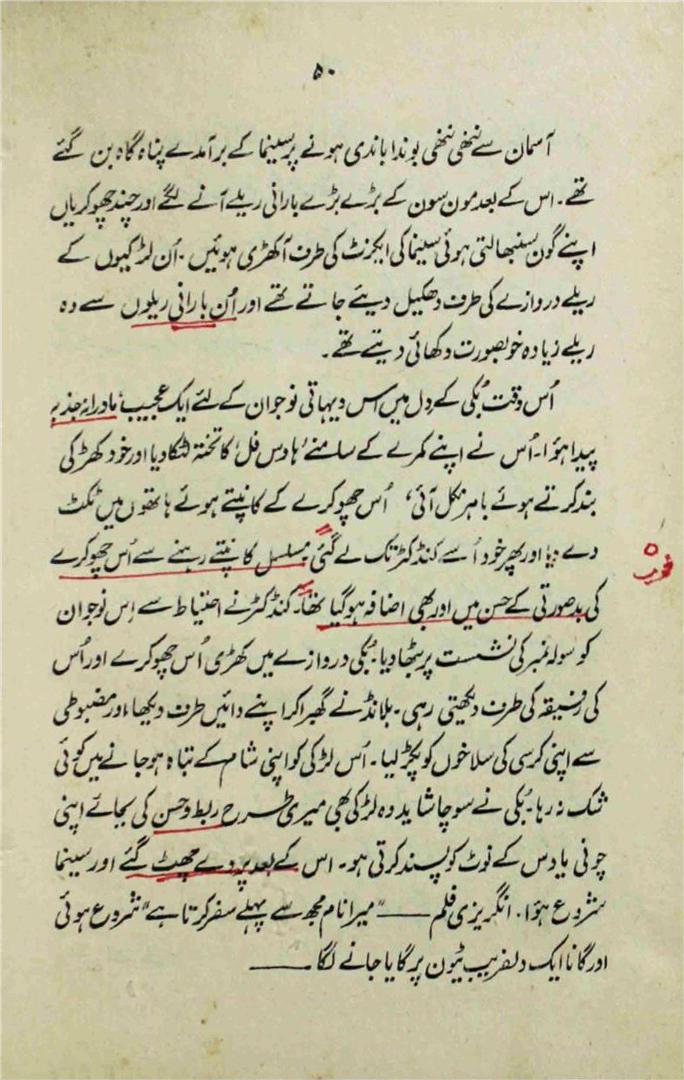 ۵۰
آسمان سے ننھی ننھی بوندا باندی ہونے پر سینما کے برآمدے پناہ گاہ بن گئے
تھے۔ اس کے بعد مون سون کے بڑے بڑے بارانی ریلے آنے لگے اور چند چھوکریاں
اپنے گون سنبھالتی ہوئی سینما کی ایجنٹ کی طرف آ کھڑی ہوئیں۔ اُن لڑکیوں کے
ریلے دروازے کی طرف دھکیل دیئے جاتے تھے اور اُن بارانی ریلوں سے وہ
ریلے زیادہ خوبصورت دکھائی دیتے تھے۔
اُس وقت بُکی کے دِل میں اس دیہاتی نوجوان کے لئے ایک عجیب مادرانہ جذبہ
پیدا ہؤا۔ اُس نے اپنے کمرے کے سامنے ’ہاوس فل‘ کا تختہ لٹکا دیا اور خود کھڑکی
بند کرتے ہوئے باہر نکل آئی، اُس چھوکرے کے کانپتے ہوئے ہاتھوں میں ٹکٹ
دے دیا اور پھر خود اُسے کنڈکٹر تک لے گئی مسلسل کانپتے رہنے سے اُس چھوکرے
خوب
کی بدصورتی کے حسن میں اور بھی اضافہ ہو گیا تھا۔ کنڈکٹر نے احتیاط سے اِس نوجوان
کو سولہ نمبر کی نشست پر بٹھا دیا۔ بُکی دروازے میں کھڑی اُس چھوکرے اور اُس
کی رفیقہ کی طرف دیکھتی رہی۔ بلانڈ نے گھبرا کر اپنے دائیں طرف دیکھا، اور مضبوطی
سے اپنی کرسی کی سلاخوں کو پکڑ لیا۔ اُس لڑکی کو اپنی شام کے تباہ ہو جانے میں کوئی
شک نہ رہا۔ بُکی نے سوچا شاید وہ لڑکی بھی میری طرح ربط و حسن کی بجائے اپنی
چونی یا دس کے نوٹ کو پسند کرتی ہو۔ اس کے بعد پردے چھٹ گئے اور سینما
شروع ہؤا۔ انگریزی فلم —— ”میرا نام مجھ سے پہلے سفر کرتا ہے“ شروع ہوئی
اور گانا ایک دلفریب ٹیون پر گایا جانے لگا ——